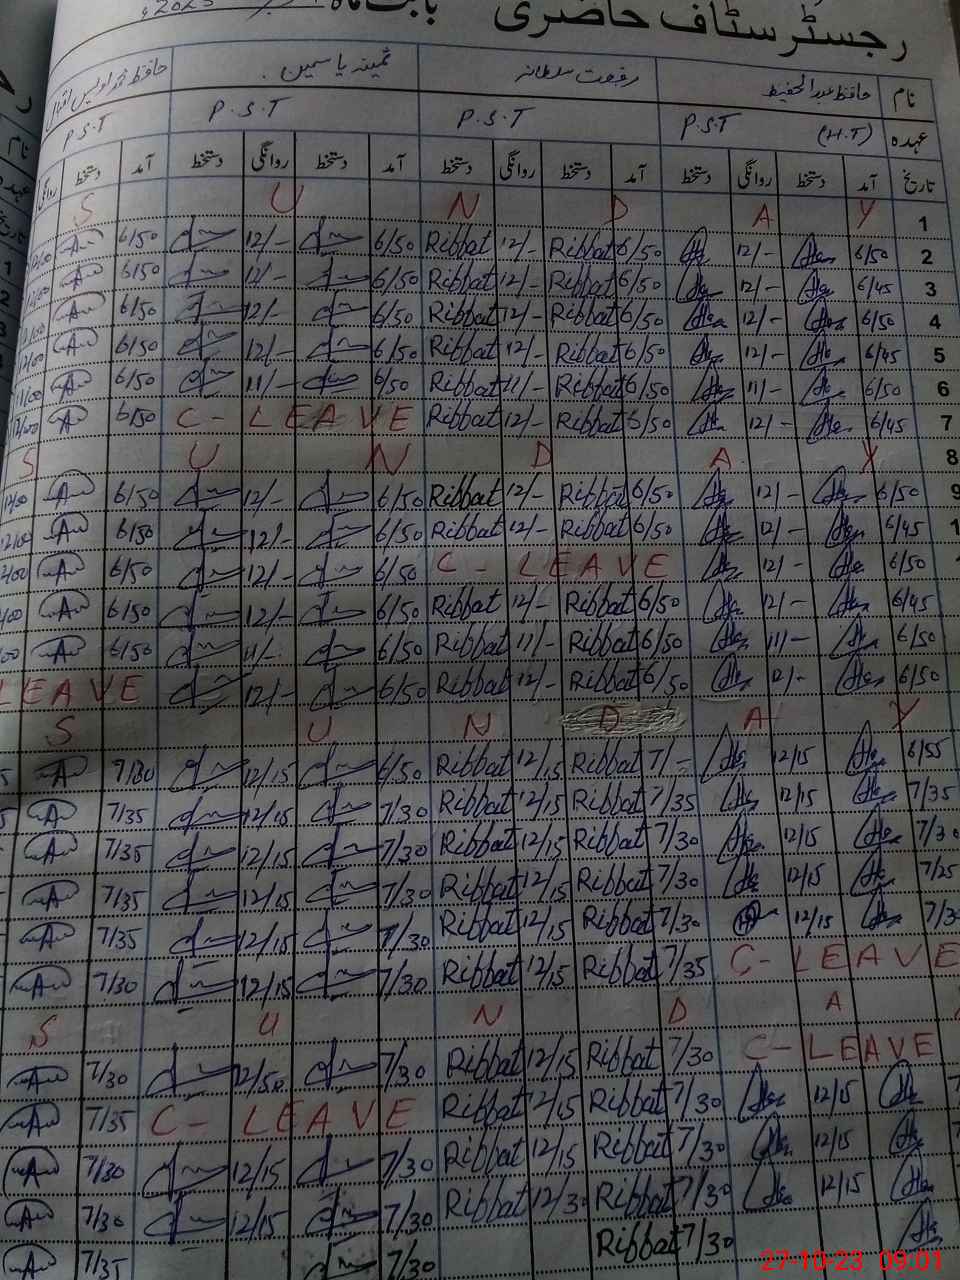 رجسٹر سٹاف حاضری بابت ماہ 2023ء
نام حافظ عبدالحفیظ رفعت سلطانہ ثمینہ یاسمین حافظ محمد اویس اقبال
عہدہ (H.T) P.S.T P.S.T P.S.T P.S.T
تاریخ آمد دستخط روانگی دستخط آمد دستخط روانگی دستخط آمد دستخط روانگی دستخط آمد دستخط روانگی
S U N D A Y 1
12/00 6/50 12/- 6/50 Ribbat 12/- Ribbat 6/50 12/- 6/50 2
6/50 12/- 6/50 Ribbat 12/- Ribbat 6/50 12/- 6/45 3
6/50 12/- 6/50 Ribbat 12/- Ribbat 6/50 12/- 6/50 4
12/00 6/50 12/- 6/50 Ribbat 12/- Ribbat 6/50 12/- 6/45 5
11/00 6/50 11/- 6/50 Ribbat 11/- Ribbat 6/50 11/- 6/50 6
12/00 6/50 C- LEAVE Ribbat 12/- Ribbat 6/50 12/- 6/45 7
S U N D A Y 8
12/00 6/50 12/- 6/50 Ribbat 12/- Ribbat 6/50 12/- 6/50 9
12/00 6/50 12/- 6/50 Ribbat 12/- Ribbat 6/50 12/- 6/45 1
6/50 12/- 6/50 C - LEAVE 12/- 6/50
6/50 12/- 6/50 Ribbat 12/- Ribbat 6/50 12/- 6/45
6/50 11/- 6/50 Ribbat 11/- Ribbat 6/50 11/- 6/50
LEAVE 12/- 6/50 Ribbat 12/- Ribbat 6/50 12/- 6/50
S U N D A Y
12/15 6/50 Ribbat 12/15 Ribbat 7/- 12/15 6/55
7/35 12/15 7/30 Ribbat 12/15 Ribbat 7/35 12/15 7/35
7/35 12/15 7/30 Ribbat 12/15 Ribbat 7/30 12/15 7/30
7/35 12/15 7/30 Ribbat 12/15 Ribbat 7/30 12/15 7/25
7/35 12/15 7/30 Ribbat 12/15 Ribbat 7/30 12/15 7/3
7/30 12/15 7/30 Ribbat 12/15 Ribbat 7/35 C- LEAVE
S U N D A
7/30 12/50 7/30 Ribbat 12/15 Ribbat 7/30 C- LEAVE
7/35 C- LEAVE Ribbat 12/15 Ribbat 7/30 12/15 7
7/30 12/15 7/30 Ribbat 12/15 Ribbat 7/30 12/15
7/30 12/15 7/30 Ribbat 12/30 Ribbat 7/30 12/15
7/35 7/30 Ribbat 7/30
27-10-23 09:01